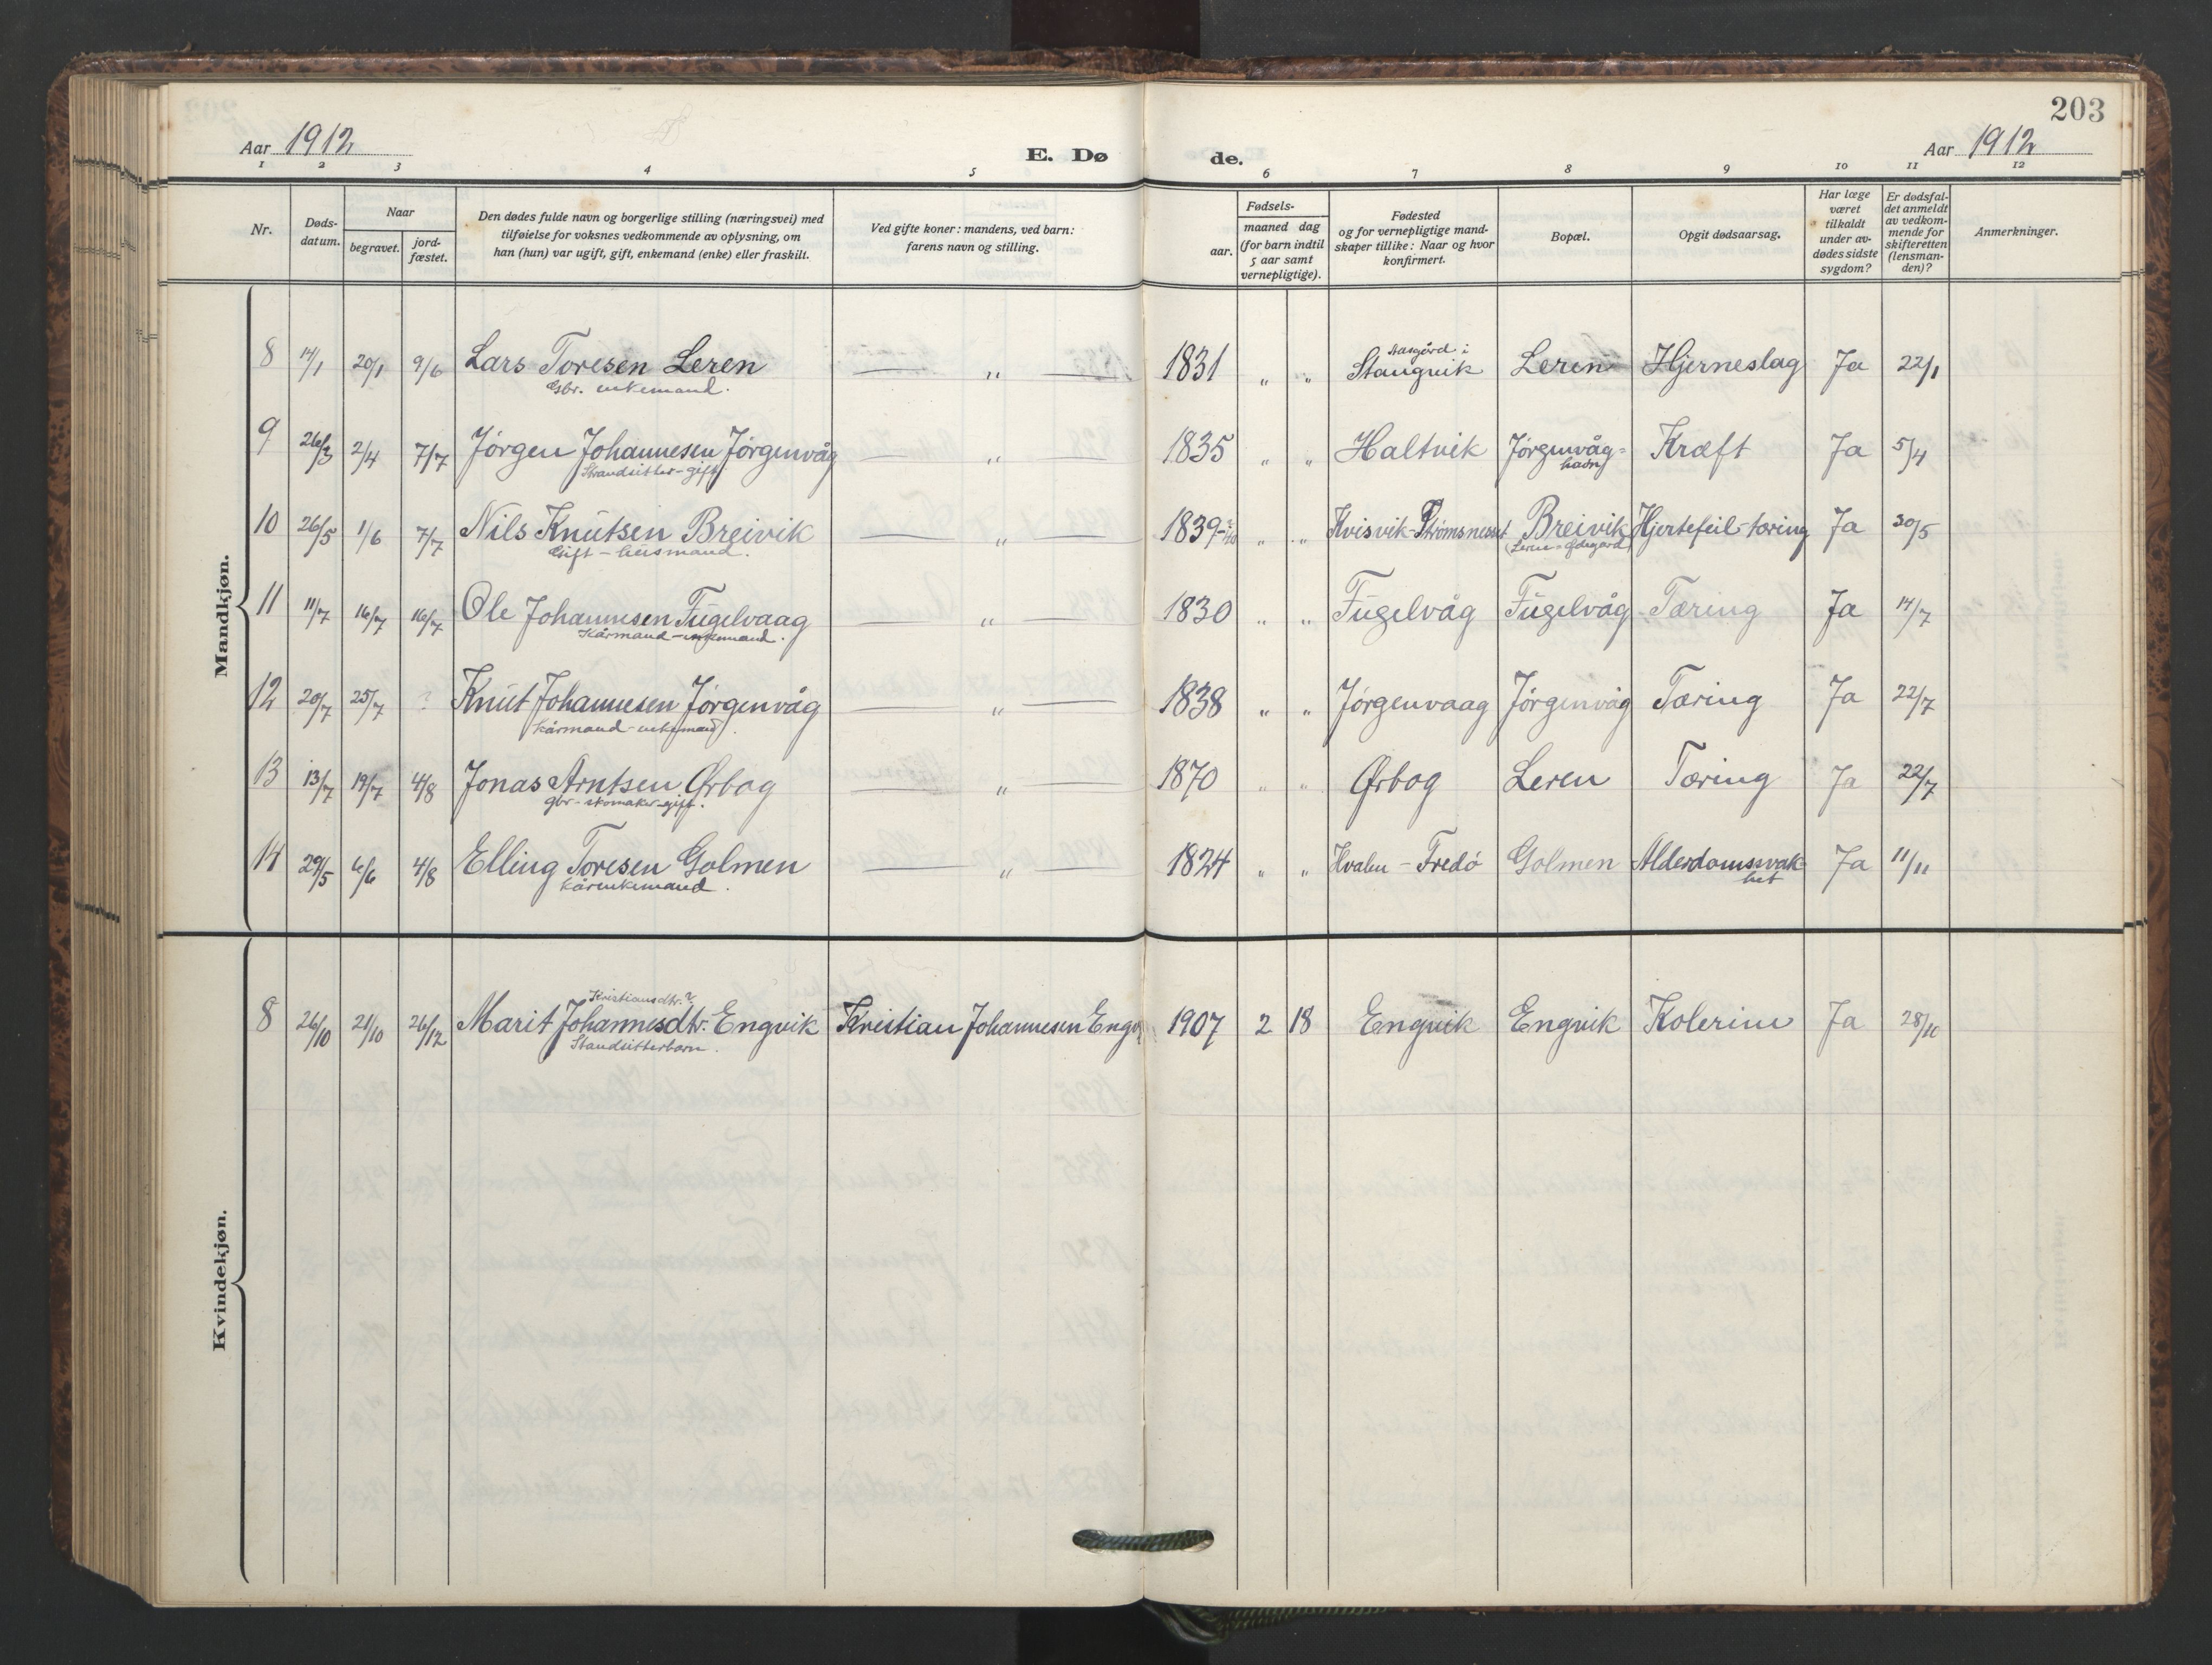 203
Aar 1912
E. Dø
de.
Aar 1912
1 2 3 4 5 6 7 8 9 10 11 12
Nr.
Døds-
datum.
Naar
begravet.
jord-
fæstet.
Den dødes fulde navn og borgerlige stilling (næringsvei) med
tilføielse for voksnes vedkommende av oplysning, om
han (hun) var ugift, gift, enkemand (enke) eller fraskilt.
Ved gifte koner: mandens, ved barn:
farens navn og stilling.
Fødsels-
aar.
maaned dag
(for barn indtil
5 aar samt
vernepligtige).
Fødested
og for vernepligtige mand-
skaper tillike: Naar og hvor
konfirmert.
Bopæl.
Opgit dødsaarsag.
Har læge
været
tilkaldt
under av-
dødes sidste
sygdom?
Er dødsfal-
det anmeldt
av vedkom-
mende for
skifteretten
(lensman-
den)?
Anmerkninger.
Mandkjøn.
8 14/1 20/1 9/6 Lars Toresen Leren — „ — 1831 „ „ Aasgård i Stangvik Leren Hjerneslag Ja 22/1
Gbr. enkemand.
9 26/3 2/4 7/7 Jørgen Johannesen Jørgenvåg — „ — 1835 „ „ Haltvik Jørgenvåg- Kræft Ja 5/4
Strandsitter-gift havn
10 26/5 1/6 7/7 Nils Knutsen Breivik — „ — 1839 „ „ Kvisvik-Strømsnesset Breivik Hjertefeil-tæring Ja 30/5
Gift - husmand. (Leren-Ødegård)
11 11/7 16/7 16/7 Ole Johannesen Fugelvaag — „ — 1830 „ „ Fugelvåg Fugelvåg Tæring Ja 14/7
Kårmand-enkemand.
12 20/7 25/7 ? Knut Johannesen Jørgenvåg — „ — 1838 „ „ Jørgenvaag Jørgenvåg Tæring Ja 22/7
Kårmand-enkemand.
13 13/7 19/7 4/8 Jonas Arntsen Ørbog — „ — 1870 „ „ Ørbog Leren Tæring Ja 22/7
gbr-skomaker-gift.
14 29/5 6/6 4/8 Elling Toresen Golmen — „ — 1824 „ „ Hvalen - Fredø Golmen Alderdomssvak- Ja 11/11
Kårenkemand. het
Kvindekjøn.
Kristiansdtr.?
8 26/10 21/10 26/12 Marit Johannesdtr. Engvik Kristian Johannesen Engv. 1907 2 18 Engvik Engvik Kolerine Ja 28/10
Standsitterbarn.